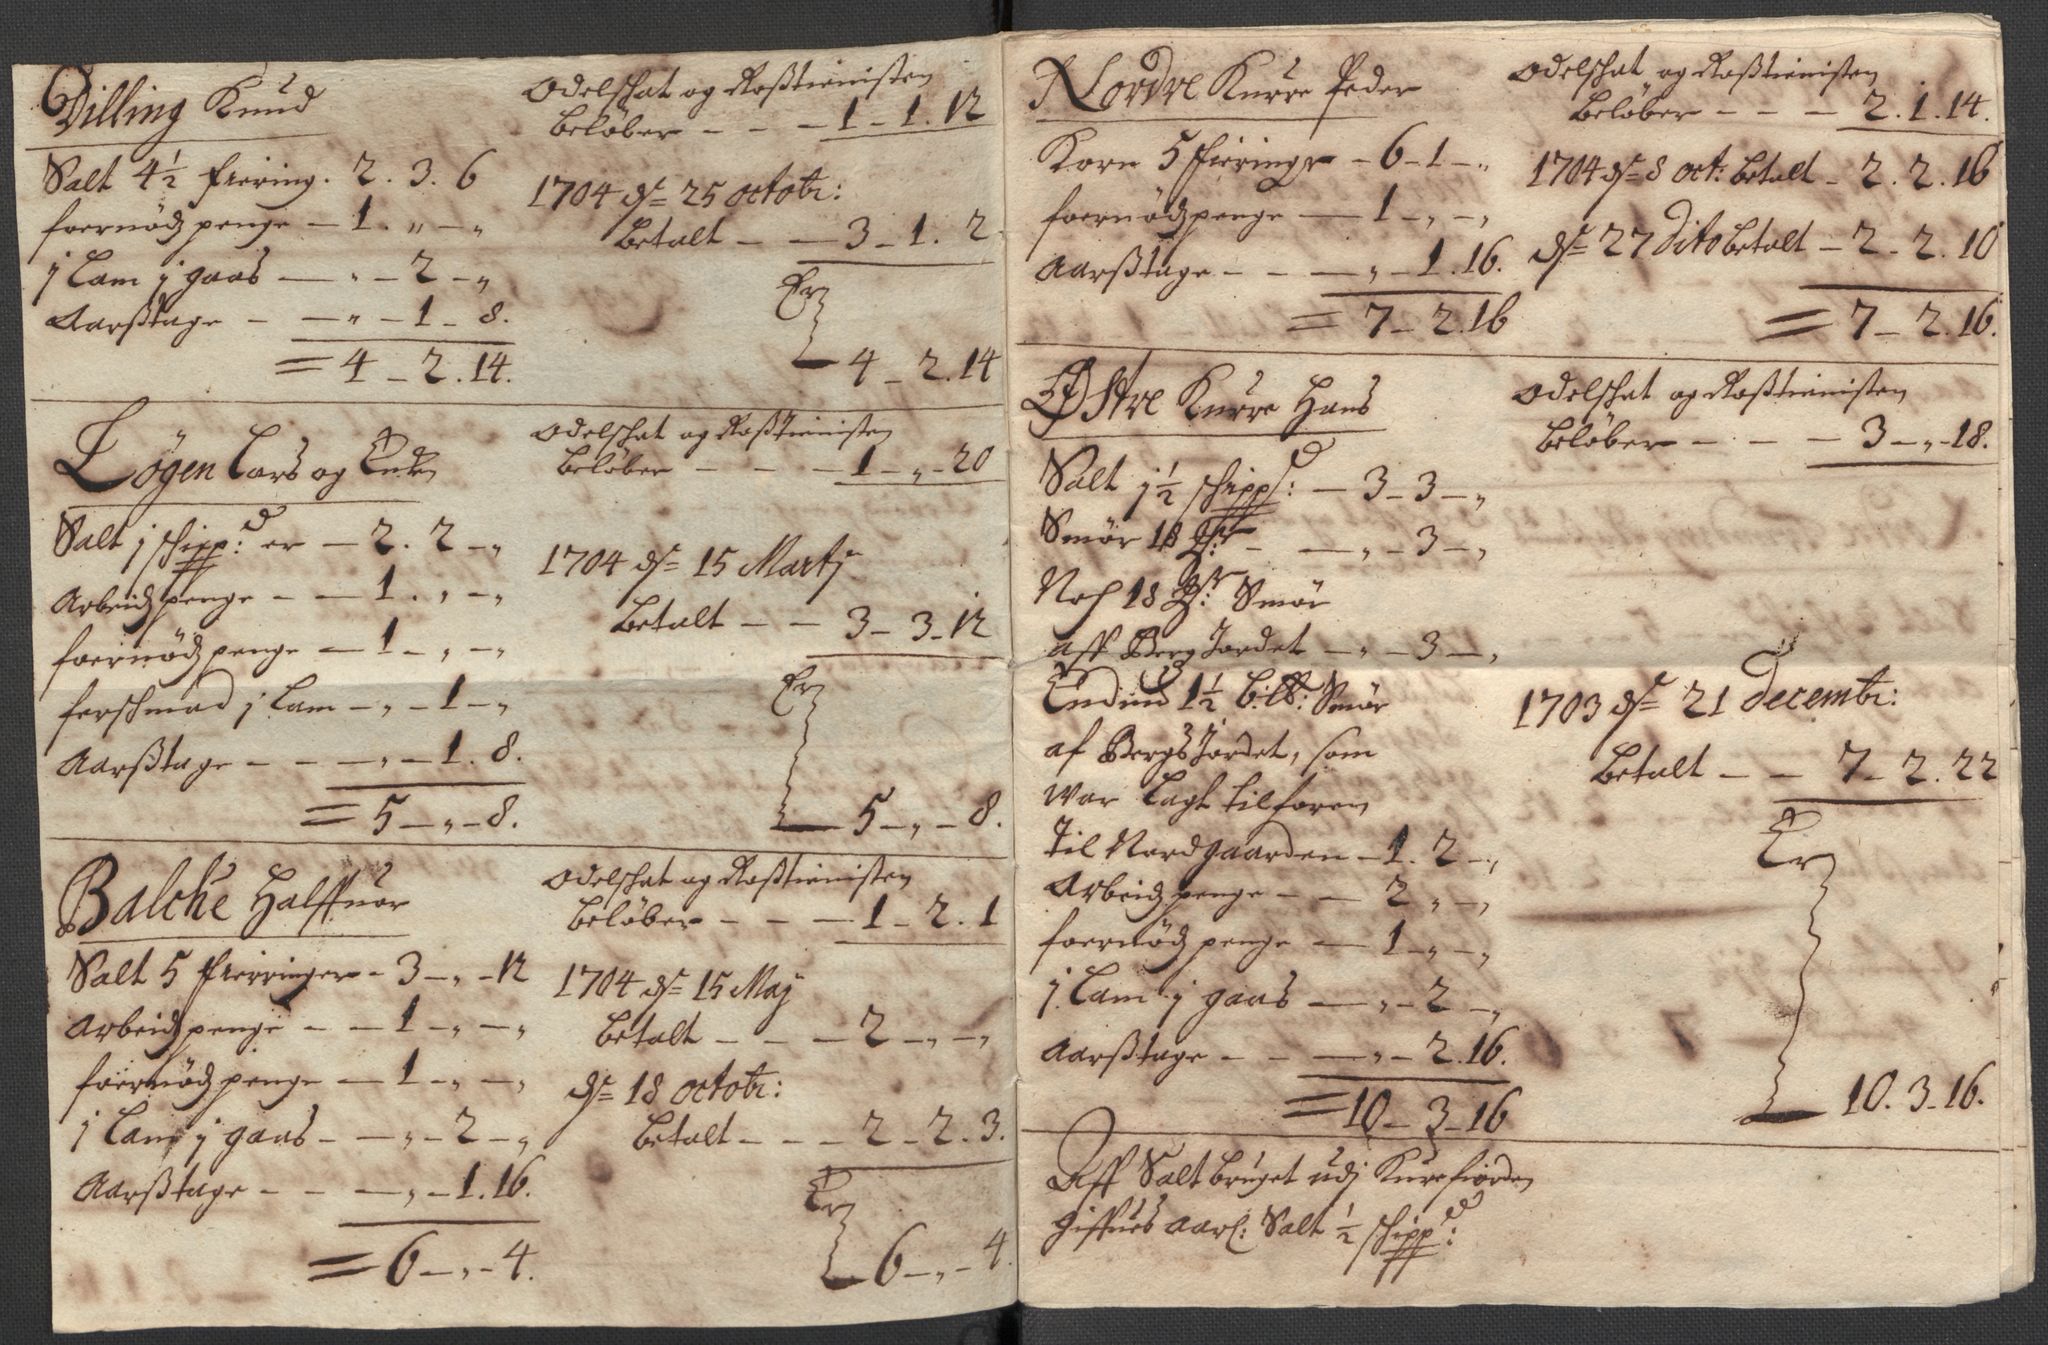 Dilling Knud
Salt 4½ fiering. 2. 3. 6
foernødz penge — 1. „ — „
j Lam j gaas — „ — 2 — „
Aarßtage — — „ — 1 — 8.
= 4 — 2. 14.
Odelschat og Roßtienisten
beløber — — — 1 — 1. 12
1704 dn 25 octobr:
betalt — — 3 — 1. 2
Er
4 — 2. 14
Løgen Lars og
Salt j schippd: er — 2. 2 — „
Arbeidz penge — — 1. „ — „
foernødz penge — 1 — „ — „
ferschmad j Lam — „ — 1 — „
Aarßtage — — — „ — 1. 8.
= 5 — „ — 8.
Odelschat og Roßtienisten
beløber — — — 1 — „ — 20
1704 dn 15 Martj
betalt — — 3 — 3 — 12
Er
5 — „ — 8.
Balche Halffuor
Salt 5 fierringer — 3 — „ — 12
Arbeidz penge — — 1 — „ — „
foernødz penge — 1 — „ — „
j Lam j gaas — — „ — 2 — „
Aarßtage — — — „ — 1. 16.
= 6 — „ — 4.
Odelschat og Roßtienisten
beløber — — — 1 — 2. 1
1704 dn 15 Maj
betalt — — — 2 — „ — „
dn 18 octobr:
betalt — — — 2 — 2. 3.
Er
6 — „ — 4.
Nordre Kurre Peder
Korn 5 fieringer — 6 — 1 — „
foernødz penge — 1 — „ — „
Aarßtage — — — „ — 1. 16.
= 7 — 2. 16
Odelschat og Roßtienisten
beløber — — — 2. 1. 14.
1704 dn 8 oct: betalt — 2. 2. 16
dn 27 dito betalt — 2 — 2. 10
= 7 — 2. 16.
Østre Kurre Hans
Salt j½ schippd: — 3 — 3 — „
Smør 18 — — „ — 3 — „
Noch 18 Smør
aff Berg Jordet — „ — 3 — „
Endnu 1½ b: Smør
af Bergs Jordet, som
war Lagt tilforen
til Nordgaarden — 1. 2 — „
Arbeidz penge — — 2 „ — „
foernødz penge — 1 „ — „
j Lam j gaas — „ — 2 — „
Aarßtage — — — „ — 2. 16.
= 10 — 3 — 16
Odelschat og Roßtienisten
beløber — — — 3 — „ — 18.
1703 dn 21 decembr:
betalt — — 7 — 2. 22
Er
10. 3 — 16.
Aff Salt bruget udj Kurefiorden
giffues aarl: Salt ½ schippd: